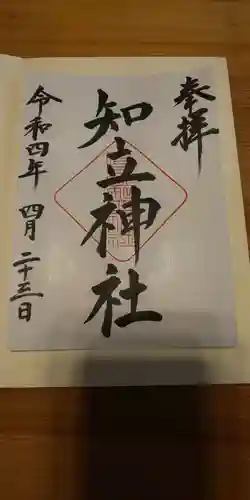 奉拝
知立神社
令和四年
四月二十三日